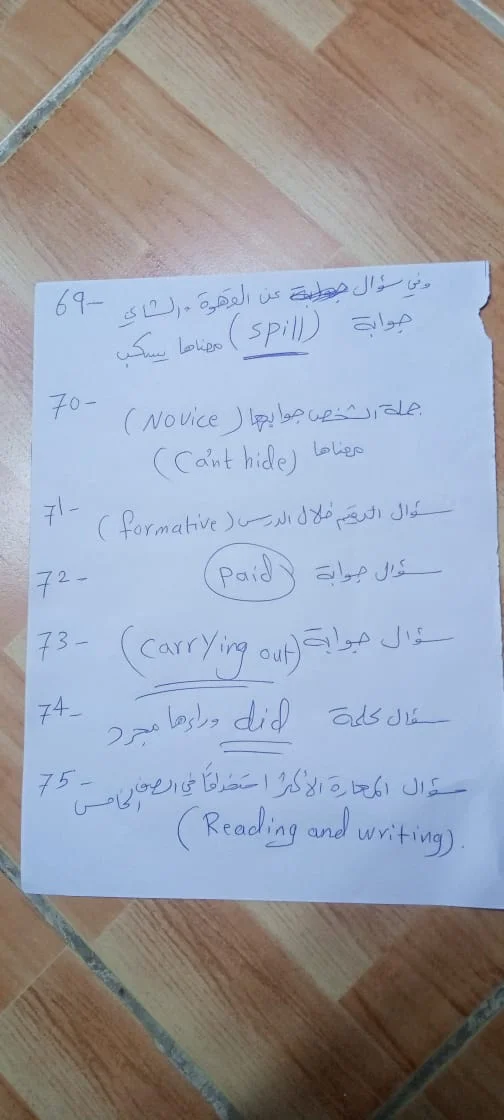 69- وفي سؤال عن القهوة والشاي
جوابة (spill) معناها يسكب
70- جملة الشخص جوابها (Novice)
معناها (Can't hide)
71- سؤال التقيم خلال الدرس (formative)
72- سؤال جوابة paid
73- سؤال جوابة (carrying out)
74- سؤال كلمة did وراءها مجرد
75- سؤال المهارة الأكثر استخداما في الصف الخامس
(Reading and writing).